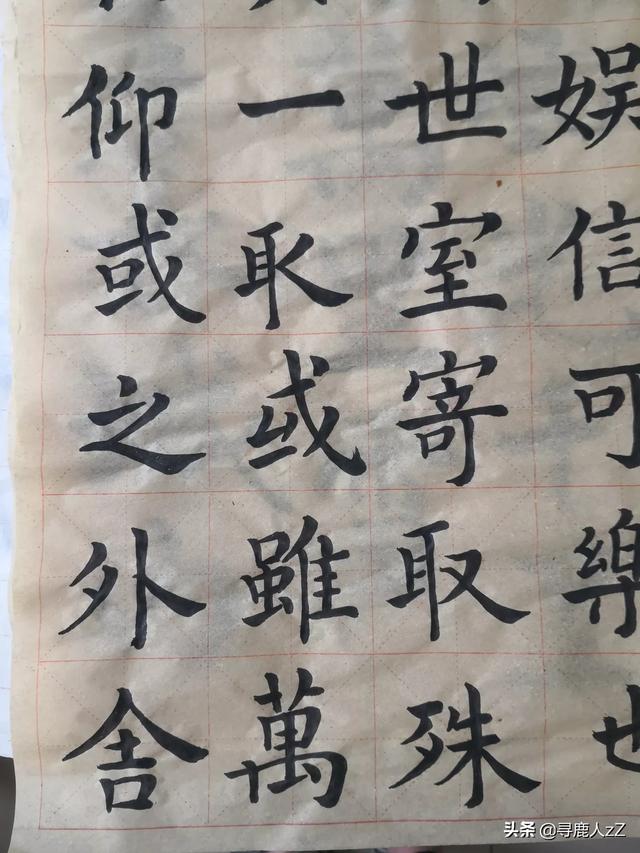 娱信可樂也
世室寄取殊
一取或雖萬
仰或之外舍
头条 @寻鹿人zZ